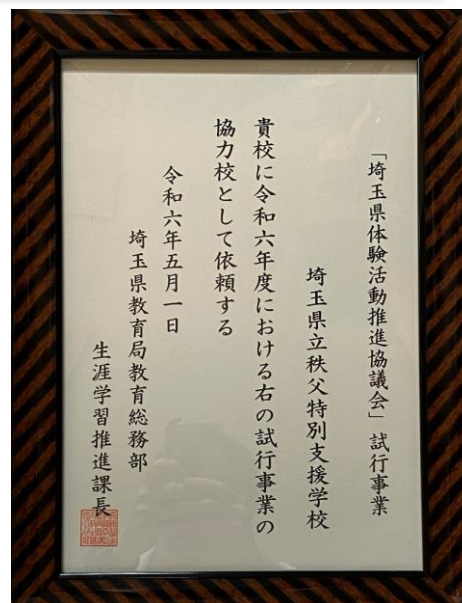 「埼玉県体験活動推進協議会」試行事業
埼玉県立秩父特別支援学校
貴校に令和六年度における右の試行事業の
協力校として依頼する
令和六年五月一日
埼玉県教育局教育総務部
生涯学習推進課長